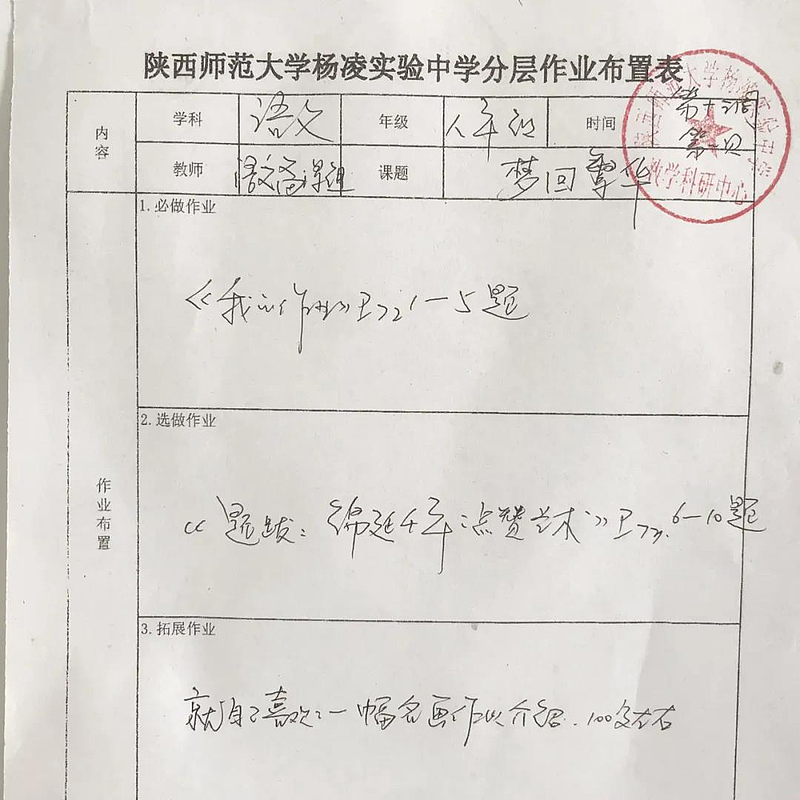 陕西师范大学杨凌实验中学分层作业布置表
内容
学科 语文 年级 八年级 时间 第十二周
教师 语文备课组 课题 梦回繁华
教学科研中心
1.必做作业
《我的作业》P72 1—5题
作业布置
2.选做作业
《题跋：绵延千年点赞艺术》P73. 6—10题
3.拓展作业
就自己喜欢的一幅名画作以介绍.100字左右